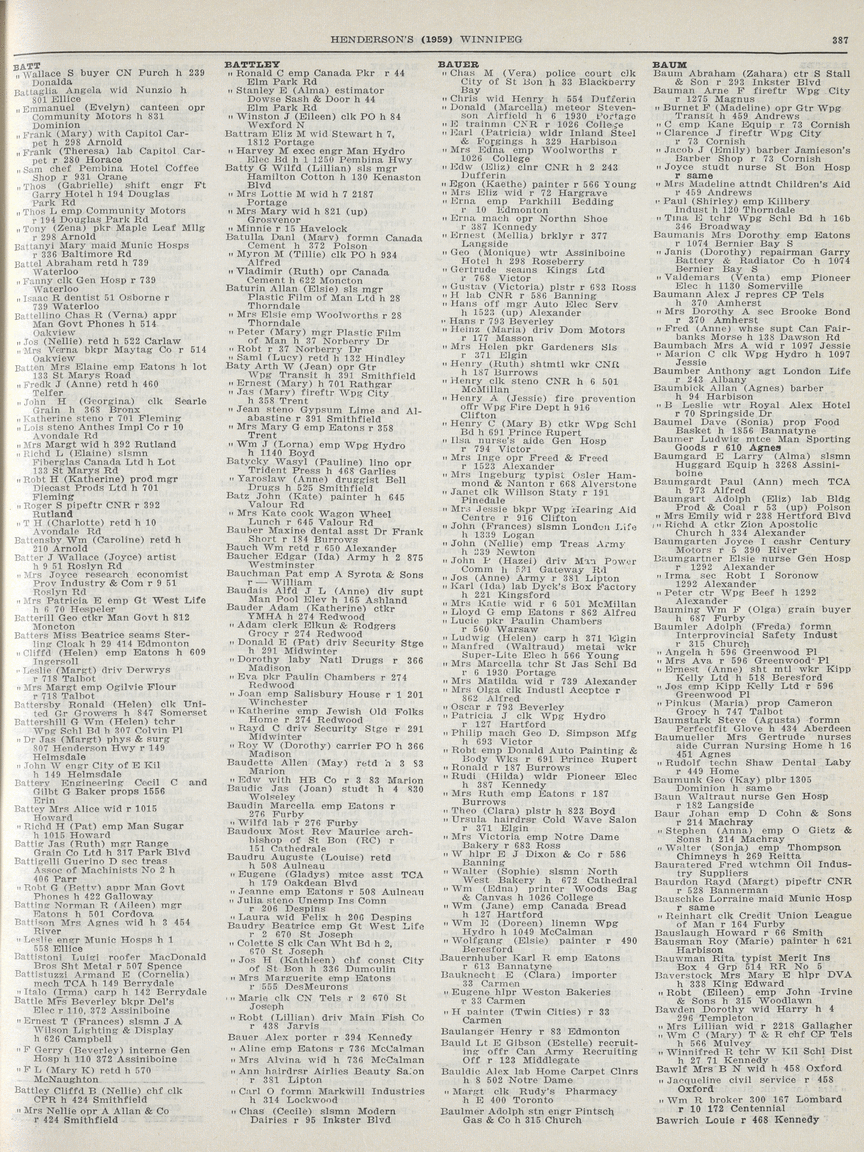 HENDERSON'S (1959) WINNIPEG 387
BATT
" Wallace S buyer CN Purch h 239
Donalda
Battaglia Angela wid Nunzio h
801 Ellice
" Emmanuel (Evelyn) canteen opr
Community Motors h 831
Dominion
" Frank (Mary) with Capitol Car-
pet h 298 Arnold
" Frank (Theresa) lab Capitol Car-
pet r 280 Horace
" Sam chef Pembina Hotel Coffee
Shop r 931 Crane
" Thos (Gabrielle) shift engr Ft
Garry Hotel h 194 Douglas
Park Rd
" Thos L emp Community Motors
r 194 Douglas Park Rd
" Tony (Zena) pkr Maple Leaf Mllg
r 298 Arnold
Battanyi Mary maid Munic Hosps
r 336 Baltimore Rd
Battel Abraham retd h 739
Waterloo
" Fanny clk Gen Hosp r 739
Waterloo
" Isaac R dentist 51 Osborne r
739 Waterloo
Battellino Chas R (Verna) appr
Man Govt Phones h 514
Oakview
" Jos (Nellie) retd h 522 Carlaw
" Mrs Verna bkpr Maytag Co r 514
Oakview
Batten Mrs Elaine emp Eatons h lot
133 St Marys Road
" Fredk J (Anne) retd h 460
Telfer
" John H (Georgina) clk Searle
Grain h 368 Bronx
" Katherine steno r 701 Fleming
" Lois steno Anthes Impl Co r 10
Avondale Rd
" Mrs Margt wid h 392 Rutland
" Richd L (Elaine) slsmn
Fiberglas Canada Ltd h Lot
133 St Marys Rd
" Robt H (Katherine) prod mgr
Diecast Prods Ltd h 701
Fleming
" Roger S pipeftr CNR r 392
Rutland
" T H (Charlotte) retd h 10
Avondale Rd
Battensby Wm (Caroline) retd h
210 Arnold
Batter J Wallace (Joyce) artist
h 9 51 Roslyn Rd
" Mrs Joyce research economist
Prov Industry & Com r 9 51
Roslyn Rd
" Mrs Patricia E emp Gt West Life
h 6 70 Hespeler
Batterill Geo ctkr Man Govt h 812
Moncton
Batters Miss Beatrice seams Ster-
ling Cloak h 29 414 Edmonton
" Cliffd (Helen) emp Eatons h 609
Ingersoll
" Leslie (Margt) driv Derwrys
r 718 Talbot
" Mrs Margt emp Ogilvie Flour
r 718 Talbot
Battersby Ronald (Helen) clk Uni-
ted Gr Growers h 847 Somerset
Battershill G Wm (Helen) tchr
Wpg Schl Bd h 307 Colvin Pl
" Dr Jas (Margt) phys & surg
807 Henderson Hwy r 149
Helmsdale
" John W engr City of E Kil
h 149 Helmsdale
Battery Engineering Cecil C and
Gilbt G Baker props 1556
Erin
Battey Mrs Alice wid r 1015
Howard
" Richd H (Pat) emp Man Sugar
h 1015 Howard
Battig Jas (Ruth) mgr Range
Grain Co Ltd h 317 Park Blvd
Battigelli Guerino D sec treas
Assoc of Machinists No 2 h
406 Parr
" Robt G (Betty) appr Man Govt
Phones h 422 Galloway
Batting Norman R (Aileen) mgr
Eatons h 501 Cordova
Battison Mrs Agnes wid h 3 454
River
" Leslie engr Munic Hosps h 1
558 Ellice
Battistoni Luigi roofer MacDonald
Bros Sht Metal r 507 Spence
Battistuzzi Armand E (Cornelia)
mech TCA h 149 Berrydale
" Italo (Irma) carp h 142 Berrydale
Battle Mrs Beverley bkpr Del's
Elec r 110, 372 Assiniboine
" Ernest T (Frances) slsmn J A
Wilson Lighting & Display
h 626 Campbell
" F Gerry (Beverley) interne Gen
Hosp h 110 372 Assiniboine
" F L (Mary K) retd h 570
McNaughton
Battley Cliffd B (Nellie) chf clk
CPR h 424 Smithfield
" Mrs Nellie opr A Allan & Co
r 424 Smithfield
BATTLEY
" Ronald C emp Canada Pkr r 44
Elm Park Rd
" Stanley E (Alma) estimator
Dowse Sash & Door h 44
Elm Park Rd
" Winston J (Eileen) clk PO h 84
Wexford N
Battram Eliz M wid Stewart h 7,
1812 Portage
" Harvey M exec engr Man Hydro
Elec Bd h 1 1250 Pembina Hwy
Batty G Wilfd (Lillian) sls mgr
Hamilton Cotton h 130 Kenaston
Blvd
" Mrs Lottie M wid h 7 2187
Portage
" Mrs Mary wid h 821 (up)
Grosvenor
" Minnie r 15 Havelock
Batulla Danl (Mary) formn Canada
Cement h 372 Polson
" Myron M (Tillie) clk PO h 934
Alfred
" Vladimir (Ruth) opr Canada
Cement h 622 Moncton
Baturin Allan (Elsie) sls mgr
Plastic Film of Man Ltd h 28
Thorndale
" Mrs Elsie emp Woolworths r 28
Thorndale
" Peter (Mary) mgr Plastic Film
of Man h 37 Norberry Dr
" Robt r 37 Norberry Dr
" Saml (Lucy) retd h 132 Hindley
Baty Arth W (Jean) opr Gtr
Wpg Transit h 391 Smithfield
" Ernest (Mary) h 701 Rathgar
" Jas (Mary) fireftr Wpg City
h 358 Trent
" Jean steno Gypsum Lime and Al-
abastine r 391 Smithfield
" Mrs Mary G emp Eatons r 358
Trent
" Wm J (Lorna) emp Wpg Hydro
h 1140 Boyd
Batycky Wasyl (Pauline) lino opr
Trident Press h 468 Garlies
" Yaroslaw (Anne) druggist Bell
Drugs h 525 Smithfield
Batz John (Kate) painter h 645
Valour Rd
" Mrs Kate cook Wagon Wheel
Lunch r 645 Valour Rd
Bauber Maxine dental asst Dr Frank
Short r 184 Burrows
Bauch Wm retd r 650 Alexander
Baucher Edgar (Ida) Army h 2 875
Westminster
Bauchman Pat emp A Syrota & Sons
r — William
Baudais Alfd J L (Anne) div supt
Man Pool Elev h 165 Ashland
Bauder Adam (Katherine) ctkr
YMHA h 274 Redwood
" Adam clerk Elkun & Rodgers
Grocy r 274 Redwood
" Donald E (Pat) driv Security Stge
h 291 Midwinter
" Dorothy laby Natl Drugs r 366
Madison
" Eva pkr Paulin Chambers r 274
Redwood
" Joan emp Salisbury House r 1 201
Winchester
" Katherine emp Jewish Old Folks
Home r 274 Redwood
" Rayd C driv Security Stge r 291
Midwinter
" Roy W (Dorothy) carrier PO h 366
Madison
Baudette Allen (May) retd h 3 83
Marion
" Edw with HB Co r 3 83 Marion
Baudic Jas (Joan) studt h 4 830
Wolseley
Baudin Marcella emp Eatons r
276 Furby
" Wilfd lab r 276 Furby
Baudoux Most Rev Maurice arch-
bishop of St Bon (RC) r
151 Cathedrale
Baudru Auguste (Louise) retd
h 508 Aulneau
" Eugene (Gladys) mtce asst TCA
h 179 Oakdean Blvd
" Jeanne emp Eatons r 508 Aulneau
" Julia steno Unemp Ins Comn
r 206 Despins
" Laura wid Felix h 206 Despins
Baudry Beatrice emp Gt West Life
r 2 670 St Joseph
" Colette S clk Can Wht Bd h 2,
670 St Joseph
" Jos H (Kathleen) chf const City
of St Bon h 336 Dumoulin
" Mrs Marguerite emp Eatons
r 555 DesMeurons
" Marie clk CN Tels r 2 670 St
Joseph
" Robt (Lillian) driv Main Fish Co
r 438 Jarvis
Bauer Alex porter r 394 Kennedy
" Aline emp Eatons r 736 McCalman
" Mrs Alvina wid h 736 McCalman
" Ann hairdrsr Airlies Beauty Salon
r 381 Lipton
" Carl O formn Markwill Industries
h 314 Lockwood
" Chas (Cecile) slsmn Modern
Dairies r 95 Inkster Blvd
BAUER
" Chas M (Vera) police court clk
City of St Bon h 33 Blackberry
Bay
" Chris wid Henry h 554 Dufferin
" Donald (Marcella) meteor Steven-
son Airfield h 6 1930 Portage
" E trainmn CNR r 1026 College
" Earl (Patricia) wldr Inland Steel
& Forgings h 329 Harbison
" Mrs Edna emp Woolworths r
1026 College
" Edw (Eliz) clnr CNR h 2 243
Dufferin
" Egon (Kaethe) painter r 566 Young
" Mrs Eliz wid r 72 Hargrave
" Erna emp Parkhill Bedding
r 10 Edmonton
" Erna mach opr Northn Shoe
r 387 Kennedy
" Ernest (Mellia) brklyr r 377
Langside
" Geo (Monique) wtr Assiniboine
Hotel h 298 Roseberry
" Gertrude seams Kings Ltd
r 768 Victor
" Gustav (Victoria) plstr r 683 Ross
" H lab CNR r 586 Banning
" Hans off mgr Auto Elec Serv
h 1523 (up) Alexander
" Hans r 793 Beverley
" Heinz (Maria) driv Dom Motors
r 177 Masson
" Mrs Helen pkr Gardeners Sis
r 371 Elgin
" Henry (Ruth) shtmtl wkr CNR
h 187 Burrows
" Henry clk steno CNR h 6 501
McMillan
" Henry A (Jessie) fire prevention
offr Wpg Fire Dept h 916
Clifton
" Henry C (Mary B) ctkr Wpg Schl
Bd h 691 Prince Rupert
" Ilsa nurse's aide Gen Hosp
r 794 Victor
" Mrs Inge opr Freed & Freed
r 1523 Alexander
" Mrs Ingeburg typist Osler Ham-
mond & Nanton r 668 Alverstone
" Janet clk Willson Staty r 191
Pinedale
" Mrs Jessie bkpr Wpg Hearing Aid
Centre r 916 Clifton
" John (Frances) slsmn London Life
h 1339 Logan
" John (Nellie) emp Treas Army
h 239 Newton
" John P (Hazel) driv Man Power
Comm h 521 Gateway Rd
" Jos (Anne) Army r 381 Lipton
" Karl (Ida) lab Dyck's Box Factory
h 221 Kingsford
" Mrs Katie wid r 6 501 McMillan
" Lloyd G emp Eatons r 862 Alfred
" Lucie pkr Paulin Chambers
r 560 Warsaw
" Ludwig (Helen) carp h 371 Elgin
" Manfred (Waltraud) metal wkr
Super-Lite Elec h 566 Young
" Mrs Marcella tchr St Jas Schl Bd
r 6 1930 Portage
" Mrs Matilda wid r 739 Alexander
" Mrs Olga clk Industl Accptce r
862 Alfred
" Oscar r 793 Beverley
" Patricia J clk Wpg Hydro
r 127 Hartford
" Philip mach Geo D. Simpson Mfg
h 693 Victor
" Robt emp Donald Auto Painting &
Body Wks r 691 Prince Rupert
" Ronald r 187 Burrows
" Rudi (Hilda) wldr Pioneer Elec
h 387 Kennedy
" Mrs Ruth emp Eatons r 187
Burrows
" Theo (Clara) plstr h 823 Boyd
" Ursula hairdrsr Cold Wave Salon
r 371 Elgin
" Mrs Victoria emp Notre Dame
Bakery r 683 Ross
" W hlpr E J Dixon & Co r 586
Banning
" Walter (Sophie) slsmn North
West Bakery h 672 Cathedral
" Wm (Edna) printer Woods Bag
& Canvas h 1026 College
" Wm (Jane) emp Canada Bread
h 127 Hartford
" Wm E (Doreen) linemn Wpg
Hydro h 1049 McCalman
" Wolfgang (Elsie) painter r 490
Beresford
Bauernhuber Karl R emp Eatons
r 613 Bannatyne
Bauknecht E (Clara) importer
33 Carmen
" Eugene hlpr Weston Bakeries
r 33 Carmen
" H painter (Twin Cities) r 33
Carmen
Baulanger Henry r 83 Edmonton
Bauld Lt E Gibson (Estelle) recruit-
ing offr Can Army Recruiting
Off r 123 Middlegate
Bauldic Alex lab Home Carpet Clnrs
h 8 502 Notre Dame
" Margt clk Rudy's Pharmacy
h E 400 Toronto
Baulmer Adolph stn engr Pintsch
Gas & Co h 315 Church
BAUM
Baum Abraham (Zahara) ctr S Stall
& Son r 293 Inkster Blvd
Bauman Arne F fireftr Wpg City
r 1275 Magnus
" Burnet F (Madeline) opr Gtr Wpg
Transit h 459 Andrews
" C emp Kane Equip r 73 Cornish
" Clarence J fireftr Wpg City
r 73 Cornish
" Jacob J (Emily) barber Jamieson's
Barber Shop r 73 Cornish
" Joyce studt nurse St Bon Hosp
r same
" Mrs Madeline attndt Children's Aid
r 459 Andrews
" Paul (Shirley) emp Killbery
Indust h 120 Thorndale
" Tina E tchr Wpg Schl Bd h 16b
346 Broadway
Baumanis Mrs Dorothy emp Eatons
r 1074 Bernier Bay S
" Janis (Dorothy) repairman Garry
Battery & Radiator Co h 1074
Bernier Bay S
" Valdemars (Venta) emp Pioneer
Elec h 1130 Somerville
Baumann Alex J repres CP Tels
h 370 Amherst
" Mrs Dorothy A sec Brooke Bond
r 370 Amherst
" Fred (Anne) whse supt Can Fair-
banks Morse h 138 Dawson Rd
Baumbach Mrs A wid r 1097 Jessie
" Marion C clk Wpg Hydro h 1097
Jessie
Baumber Anthony agt London Life
r 243 Albany
Baumbick Allan (Agnes) barber
h 94 Harbison
" B Leslie wtr Royal Alex Hotel
r 70 Springside Dr
Baumel Dave (Sonia) prop Food
Basket h 1856 Bannatyne
Baumer Ludwig mtce Man Sporting
Goods r 610 Agnes
Baumgard E Larry (Alma) slsmn
Huggard Equip h 3268 Assini-
boine
Baumgardt Paul (Ann) mech TCA
h 973 Alfred
Baumgart Adolph (Eliz) lab Bldg
Prod & Coal r 53 (up) Polson
" Mrs Emily wid r 238 Hertford Blvd
" Richd A ctkr Zion Apostolic
Church h 334 Alexander
Baumgarten Joyce I cashr Century
Motors r 5 390 River
Baumgartner Elsie nurse Gen Hosp
r 1292 Alexander
" Irma sec Robt I Soronow
1292 Alexander
" Peter ctr Wpg Beef h 1292
Alexander
Bauming Wm F (Olga) grain buyer
h 687 Furby
Baumler Adolph (Freda) formn
Interprovincial Safety Indust
r 315 Church
" Angela h 596 Greenwood Pl
" Mrs Ava r 596 Greenwood Pl
" Ernest (Anne) sht mtl wkr Kipp
Kelly Ltd h 518 Beresford
" Jos emp Kipp Kelly Ltd r 596
Greenwood Pl
" Pinkus (Maria) prop Cameron
Grocy h 747 Talbot
Baumstark Steve (Agusta) formn
Perfectfit Glove h 434 Aberdeen
Baumueller Mrs Gertrude nurses
aide Curran Nursing Home h 16
451 Agnes
" Rudolf techn Shaw Dental Laby
r 449 Home
Baumunk Geo (Kay) plbr 1305
Dominion h same
Baun Waltraut nurse Gen Hosp
r 182 Langside
Baur Johan emp D Cohn & Sons
r 214 Machray
" Stephen (Anna) emp O Gietz &
Sons h 214 Machray
" Walter (Sonja) emp Thompson
Chimneys h 269 Reitta
Bauratered Fred wtchmn Oil Indus-
try Suppliers
Baurdon Rayd (Margt) pipeftr CNR
r 528 Bannerman
Bauschke Lorraine maid Munic Hosp
r same
" Reinhart clk Credit Union League
of Man r 164 Furby
Bauslaugh Howard r 66 Smith
Bausman Roy (Marie) painter h 621
Harbison
Bauwman Rita typist Merit Ins
Box 4 Grp 514 RR No 5
Baverstock Mrs Mary E hlpr DVA
h 338 King Edward
" Robt (Eileen) emp John Irvine
& Sons h 315 Woodlawn
Bawden Dorothy wid Harry h 4
296 Templeton
" Mrs Lillian wid r 2218 Gallagher
" Wm C (Mary) T & R chf CP Tels
h 566 Mulvey
" Winnifred R tchr W Kil Schl Dist
h 27 71 Kennedy
Bawlf Mrs B N wid h 458 Oxford
" Jacqueline civil service r 458
Oxford
" Wm R broker 300 167 Lombard
r 10 172 Centennial
Bawrich Louie r 468 Kennedy